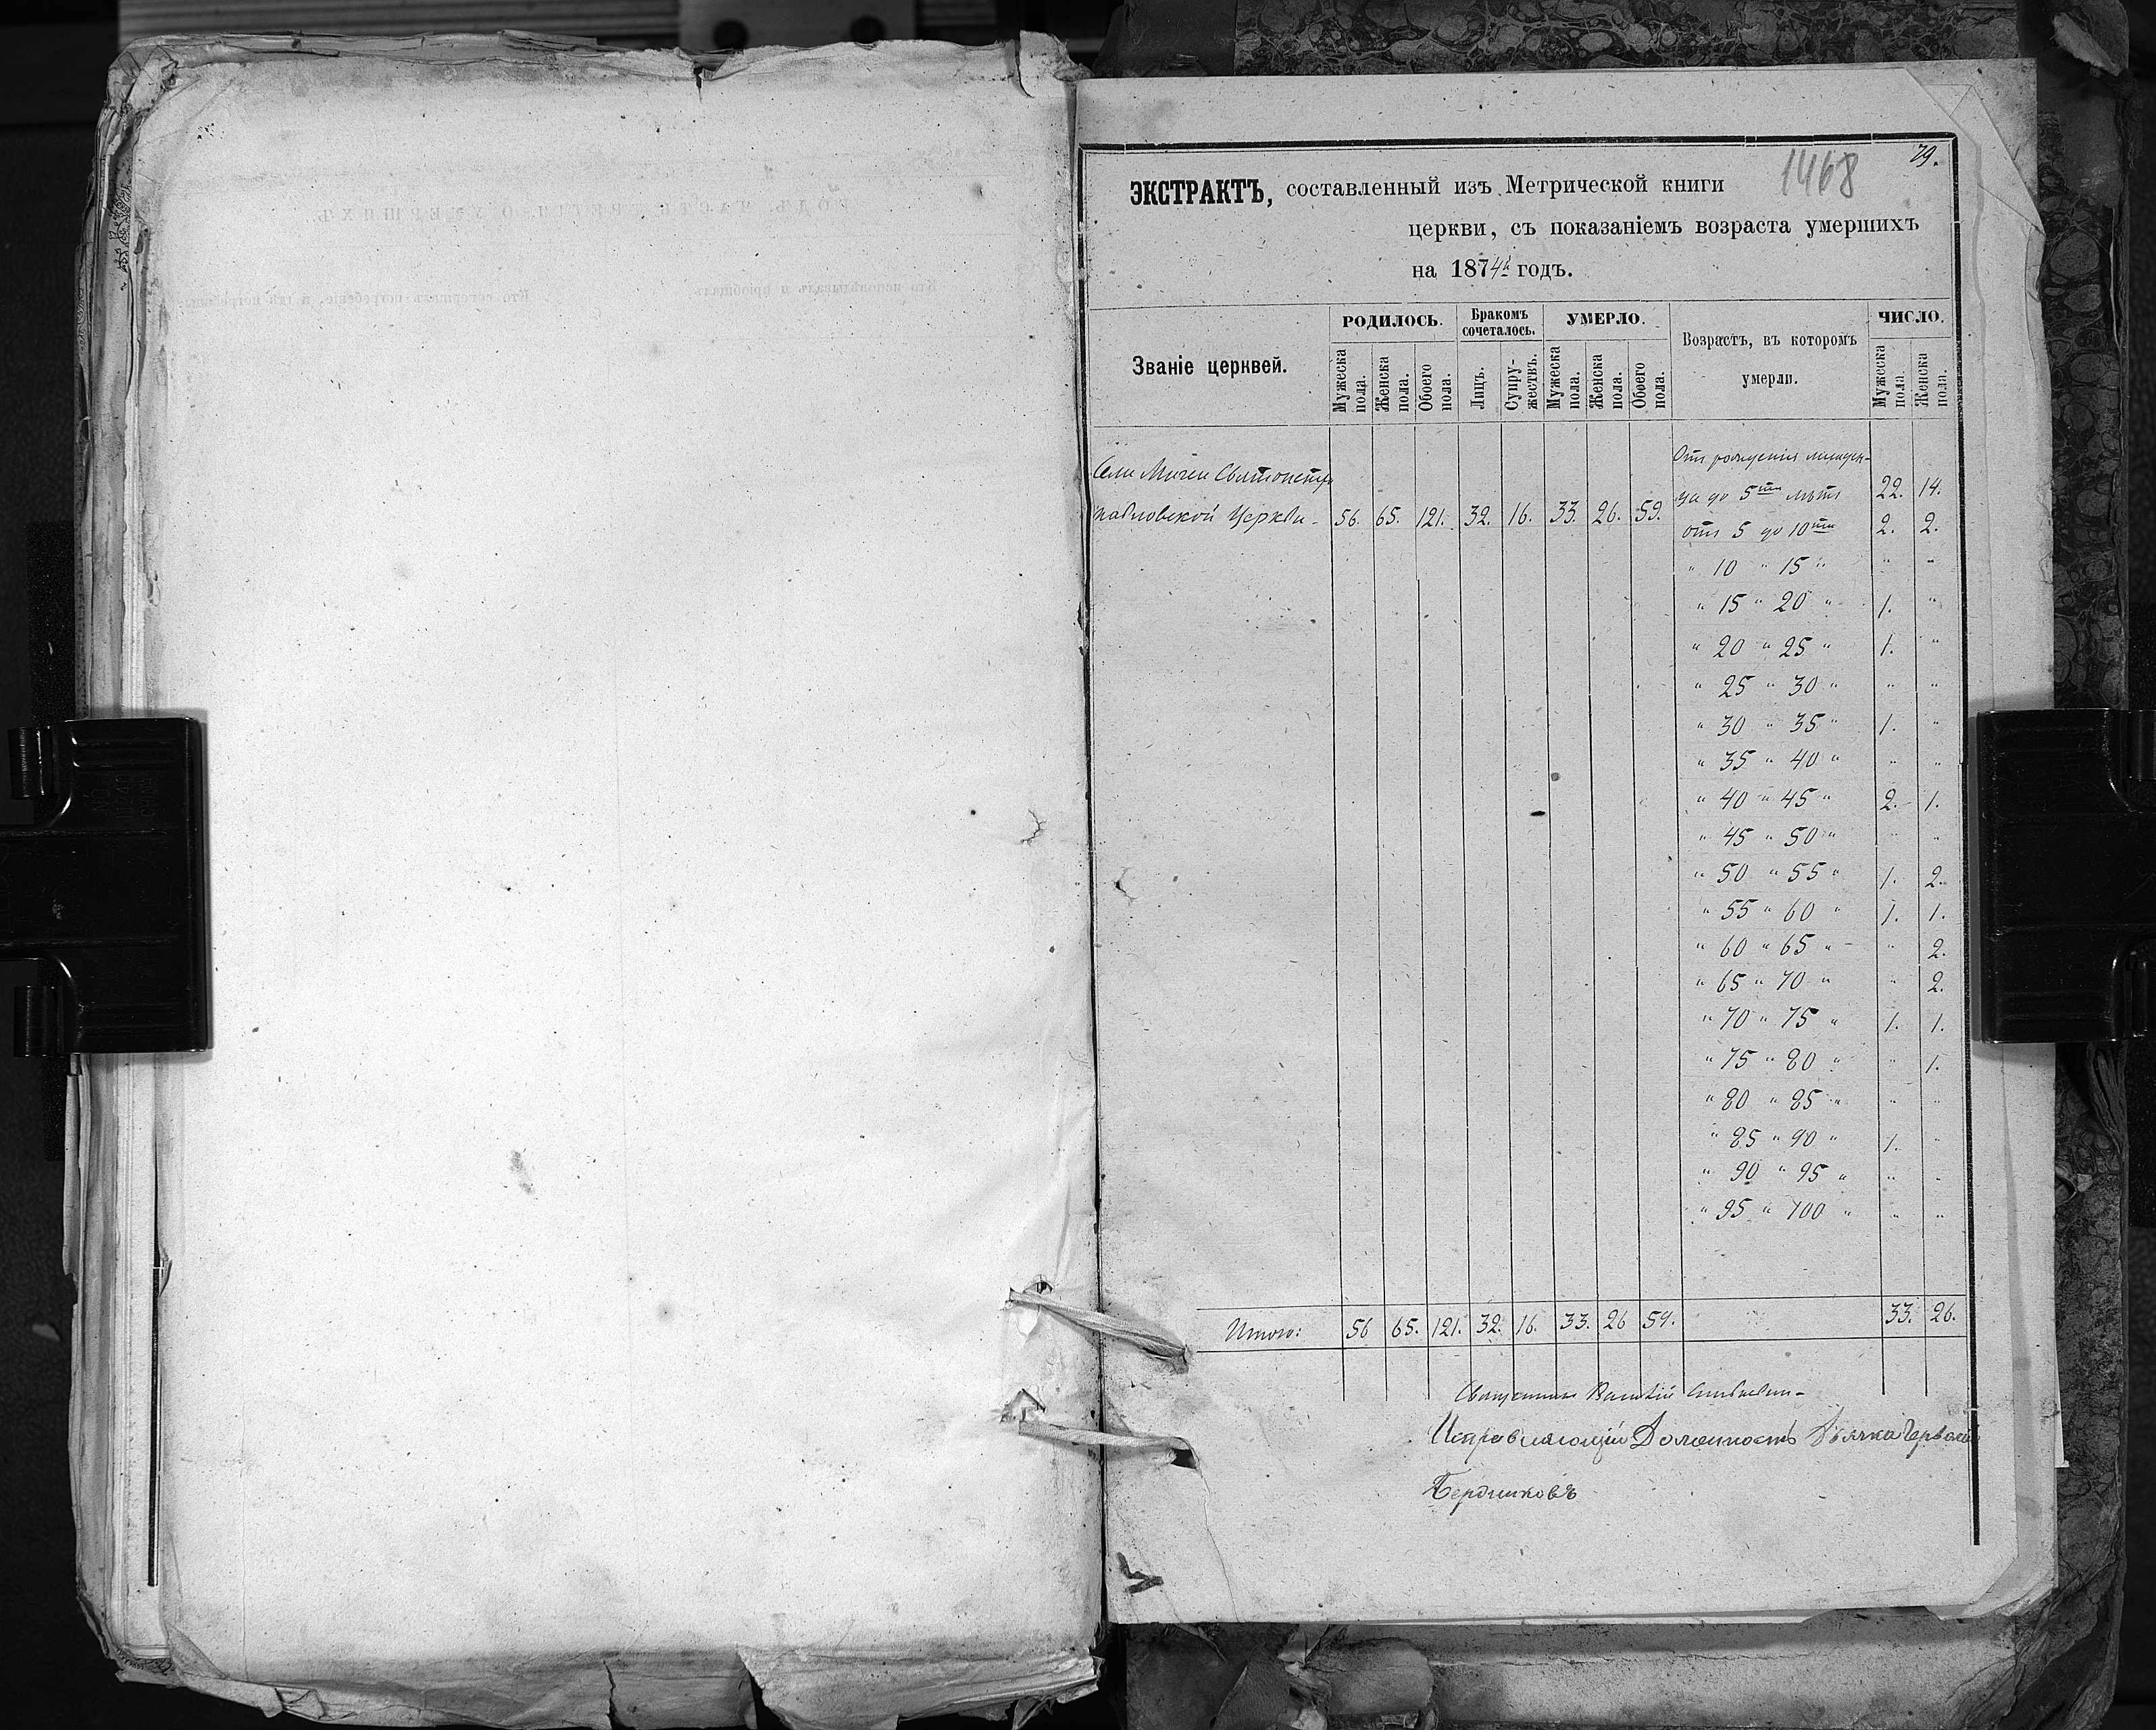 79.
1468
ЭКСТРАКТЪ, составленный изъ Метрической книги
церкви, съ показаніемъ возраста умершихъ
на 1874й годъ.
Званіе церквей. РОДИЛОСЬ. Бракомъ сочеталось. УМЕРЛО. Возрастъ, въ которомъ умерли. ЧИСЛО.
Мужеска пола. Женска пола. Обоего пола. Лицъ. Супружествъ. Мужеска пола. Женска пола. Обоего пола. Мужеска пола. Женска пола.
Святопетро
Отъ рожденія
павловской Церкви 56. 65. 121. 32. 16. 33. 26. 59.
да до 5ти лѣтъ 22. 14.
отъ 5 до 10ти 2. 2.
" 10 " 15 " " "
" 15 " 20 " 1. "
" 20 " 25 " 1. "
" 25 " 30 " " "
" 30 " 35 " 1. "
" 35 " 40 " " "
" 40 " 45 " 2. 1.
" 45 " 50 " " "
" 50 " 55 " 1. 2.
" 55 " 60 " 1. 1.
" 60 " 65 " " 2.
" 65 " 70 " " 2.
" 70 " 75 " 1. 1.
" 75 " 80 " " 1.
" 80 " 85 " " "
" 85 " 90 " 1. "
" 90 " 95 " " "
" 95 " 100 " " "
Итого: 56 65. 121. 32. 16. 33. 26 59. 33. 26.
Священникъ
Исправляющій Должность Дьячка
Бердниковъ